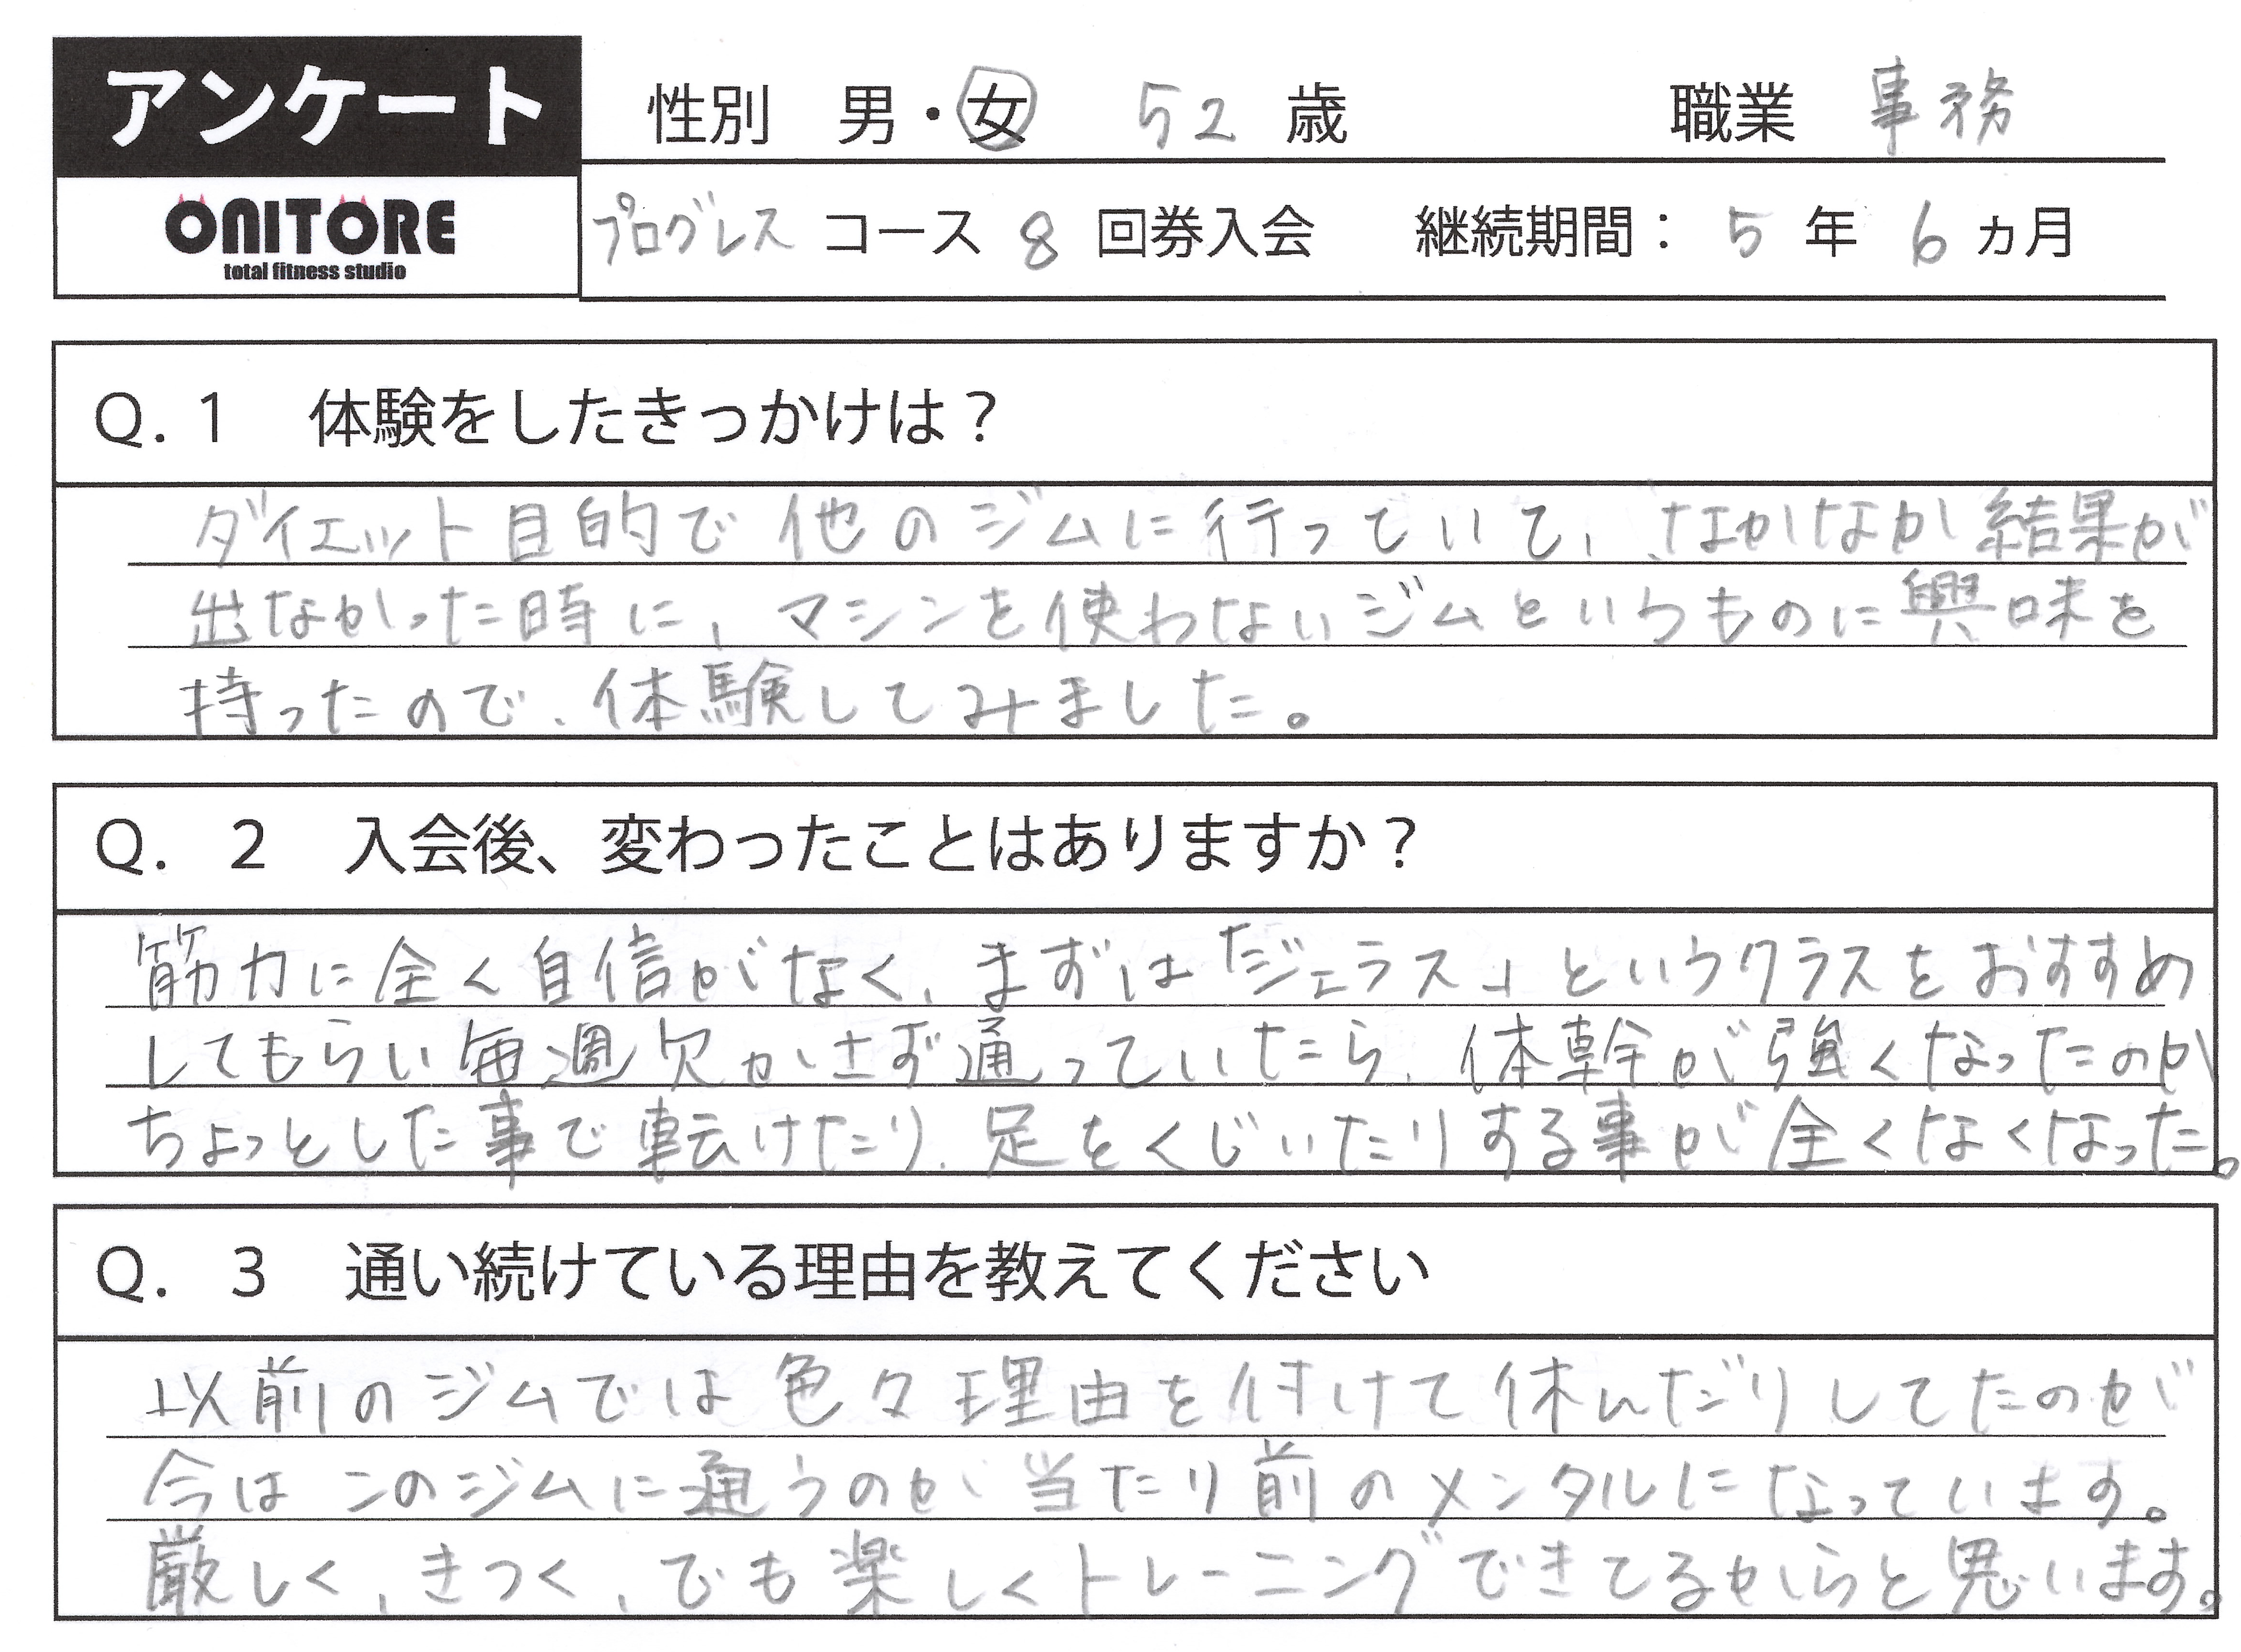 アンケート
性別 男・女 52 歳 職業 事務
ONITORE
total fitness studio
プログレス コース 8 回券入会 継続期間： 5 年 6 ヵ月
Q. 1 体験をしたきっかけは？
ダイエット目的で他のジムに行っていて、なかなか結果が
出なかった時に、マシンを使わないジムというものに興味を
持ったので、体験してみました。
Q. 2 入会後、変わったことはありますか？
筋力に全く自信がなく、まずは「ジェラス」というクラスをおすすめ
してもらい毎週欠かさず通っていたら、体幹が強くなったのか
ちょっとした事で転けたり、足をくじいたりする事が全くなくなった。
Q. 3 通い続けている理由を教えてください
以前のジムでは色々理由を付けて休んだりしてたのが
今はこのジムに通うのが当たり前のメンタルになっています。
厳しく、きつく、でも楽しくトレーニングできてるからと思います。